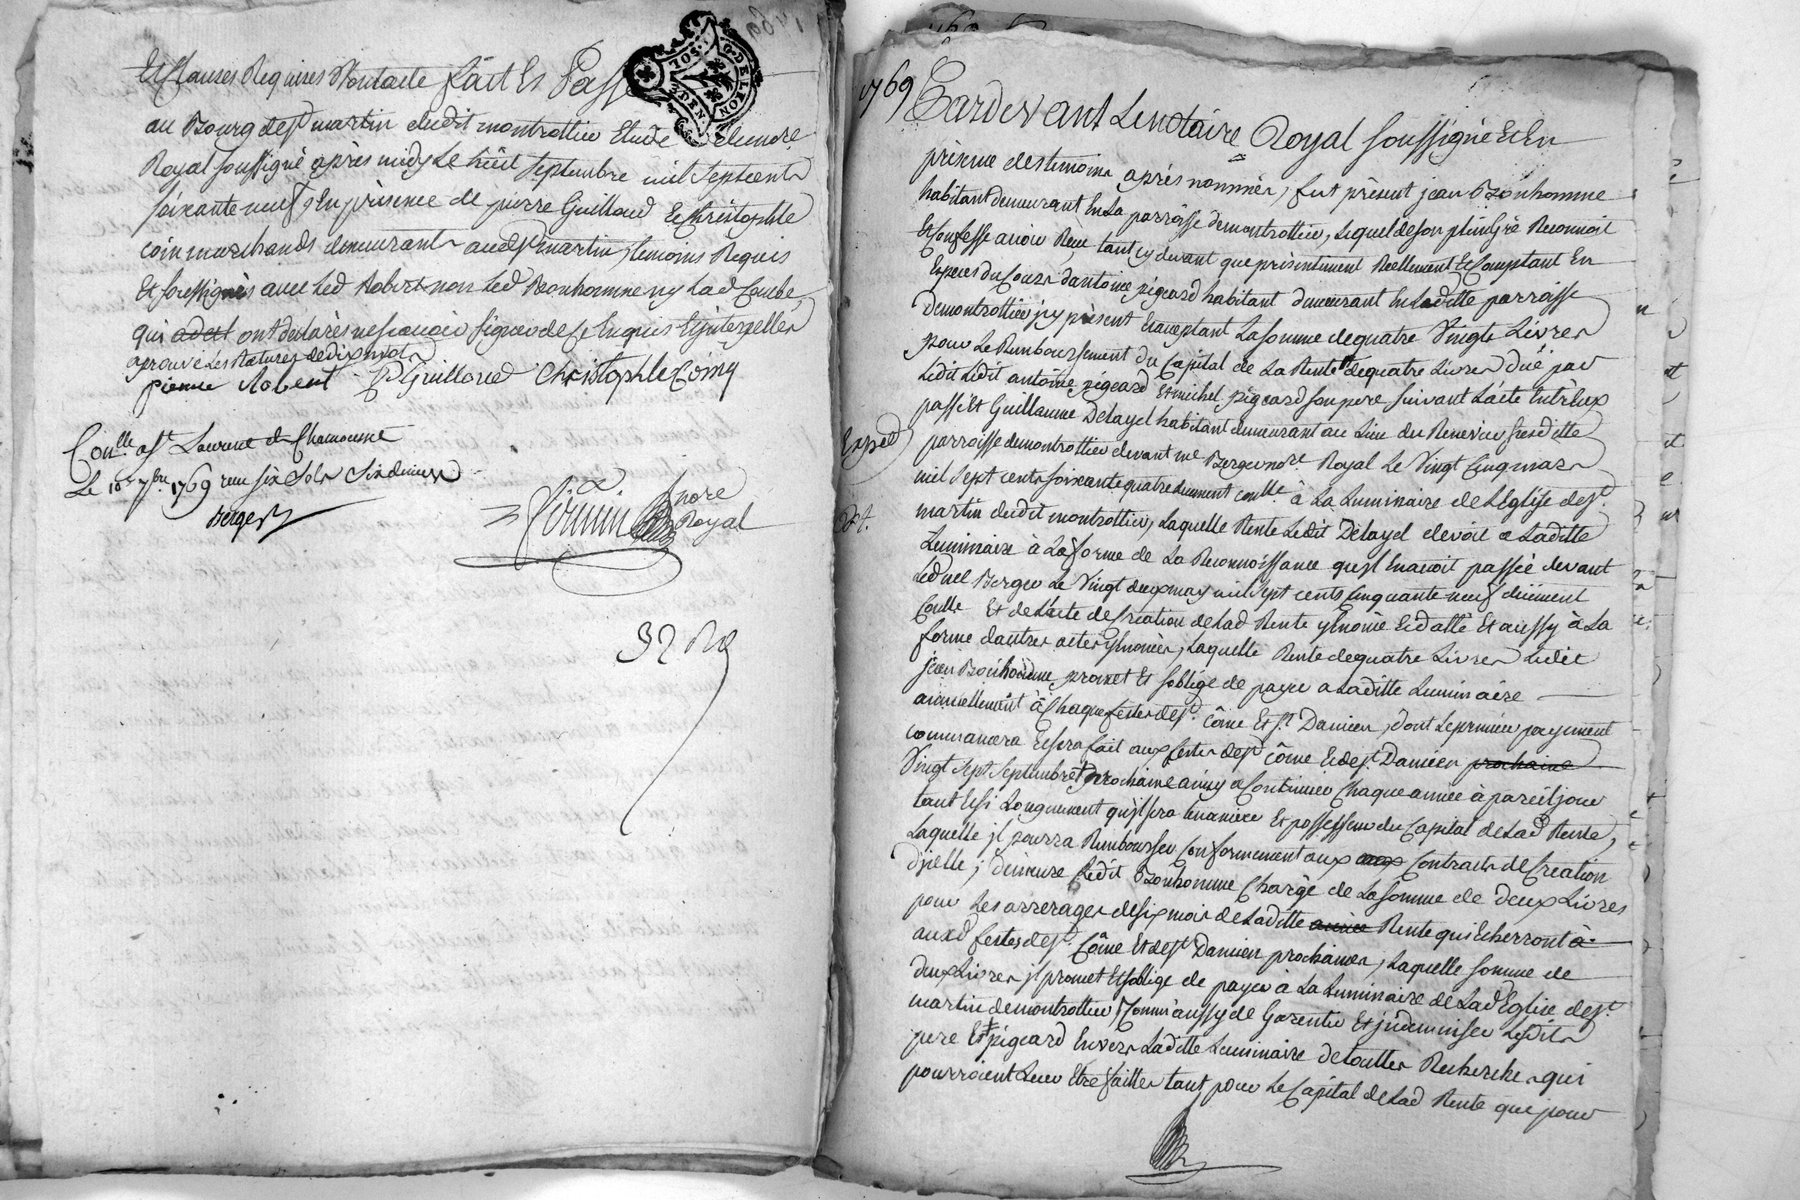 Et Clauses Requises Dont acte fait Et Passé
au Bourg de St martin dudit montrottier Etude Dud nore.
Royal soussigné après midy Le huit Septembre mil Sept cent
soixante neuf, En présence de pierre Guilloud Et Christophle
coin marchands demeurants aud St martin, temoins Requis
Et soussignés avec Led Robert non Led Bonhomme ny Lad Combe,
qui ont déclarés ne sçavoir signer de ce Enquis Et interpellés
aprouvé Les Ratures de dix mots
pierre Robert PGuilloud ChristophleCoing
Conlle. a St Laurent de Chamousset
Le 10e 7bre 1769 reçu six Sols Six deniers
Berger
nore
Royal
SOL DEN G.DE LYON
1769 Pardevant Le notaire Royal soussigné Et En
présence des temoins après nommés, fut présent jean Bonhomme
habitant demeurant En La parroisse de montrottier, Lequel de son plein Gré Reconnoit
Et Confesse avoir Reçu, tant cy devant que présentement Réellement Et Comptant En
Especes du Cours d'antoine pigeard habitant demeurant En Laditte parroisse
de montrottier, icy présent Et acceptant La somme de quatre Vingts Livres
pour Le Remboursement du Capital de La Rente de quatre Livres düe par
Ledit antoine pigeard Et michel pigeard son pere suivant L'acte Entr'Eux
passé Et Guillaume Delayel habitant demeurant au Lieu du susditte
Exped
parroisse de montrottier devant me Berger nore. Royal Le Vingt Cinq mars
mil Sept cents soixante quatre duement conlle. à La Luminaire de L'Eglise de St.
martin dudit montrottier, Laquelle Rente Ledit Delayel devoit a Laditte
Luminaire à La forme de La Reconnoissance qu'il En avoit passée devant
Led me Berger Le Vingt deux may mil Sept cents Cinquante neuf düement
Conlle Et de L'acte de Création de Lad Rente y Enoncé Et datté Et aussy à La
forme d'autres actes y Enoncés, Laquelle Rente de quatre Livres Ledit
jean Bonhomme promet Et s'oblige de payer a Laditte Luminaire
annuellement à Chaque festes de St. Côme Et St. Damien, dont Le premier payement
commancera Et sera fait aux festes de St Côme Et de St. Damien prochaine
Vingt Sept Septembre prochaine ainsy a Continuer Chaque année à pareil jour
tant Et si Longuement qu'il sera tenancier Et possesseur du Capital de Lad Rente,
Laquelle il pourra Rembourser Conformement aux Contracts de Création
d'jcelle; demeure Ledit Bonhomme Chargé de La somme de deux Livres
pour Les arrerages de six mois de Laditte Rente qui Echerront à
auxd festes de St. Côme Et de St Damien prochaines, Laquelle somme de
deux Livres il promet Et s'oblige de payer à La Luminaire de Lad Eglise de St.
martin de montrottier Comm'aussy de Garentir Et jndemniser Lesdits
pere Et pigeard Envers Laditte Luminaire de touttes Recherches qui
pourroient Leur Etre faittes tant pour Le Capital de Lad Rente que pour